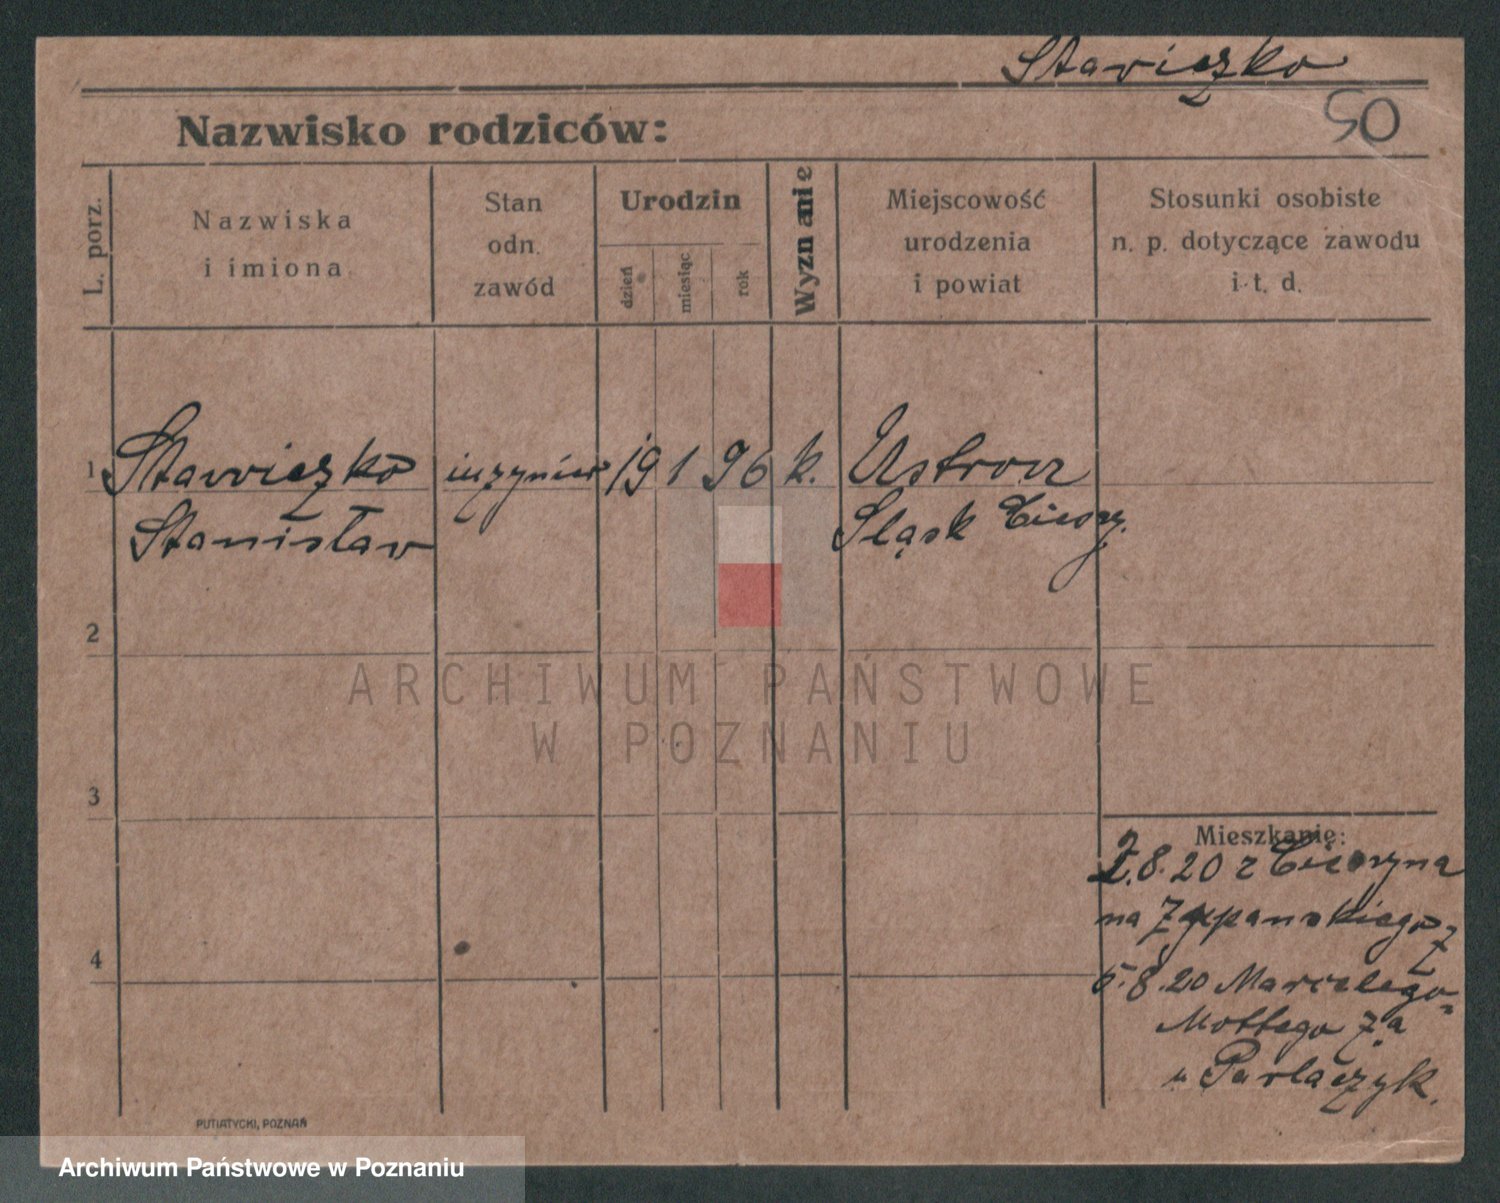 Stawiczko
50
Nazwisko rodziców:
L. porz.
Nazwiska
i imiona
Stan
odn.
zawód
Urodzin
dzień
miesiąc
rok
Wyznanie
Miejscowość
urodzenia
i powiat
Stosunki osobiste
n. p. dotyczące zawodu
i t. d.
1 Stawiczko inżynier 19 1 96 k. Ustroń
Stanisław Śląsk Ciesz.
2
ARCHIWUM PAŃSTWOWE
W POZNANIU
3
Mieszkanie:
2.8.20 z Cieszyna
na 7
4
5.8.20 Marcelego
Mottego 7a
u
PUTIATYCKI, POZNAŃ
Archiwum Państwowe w Poznaniu